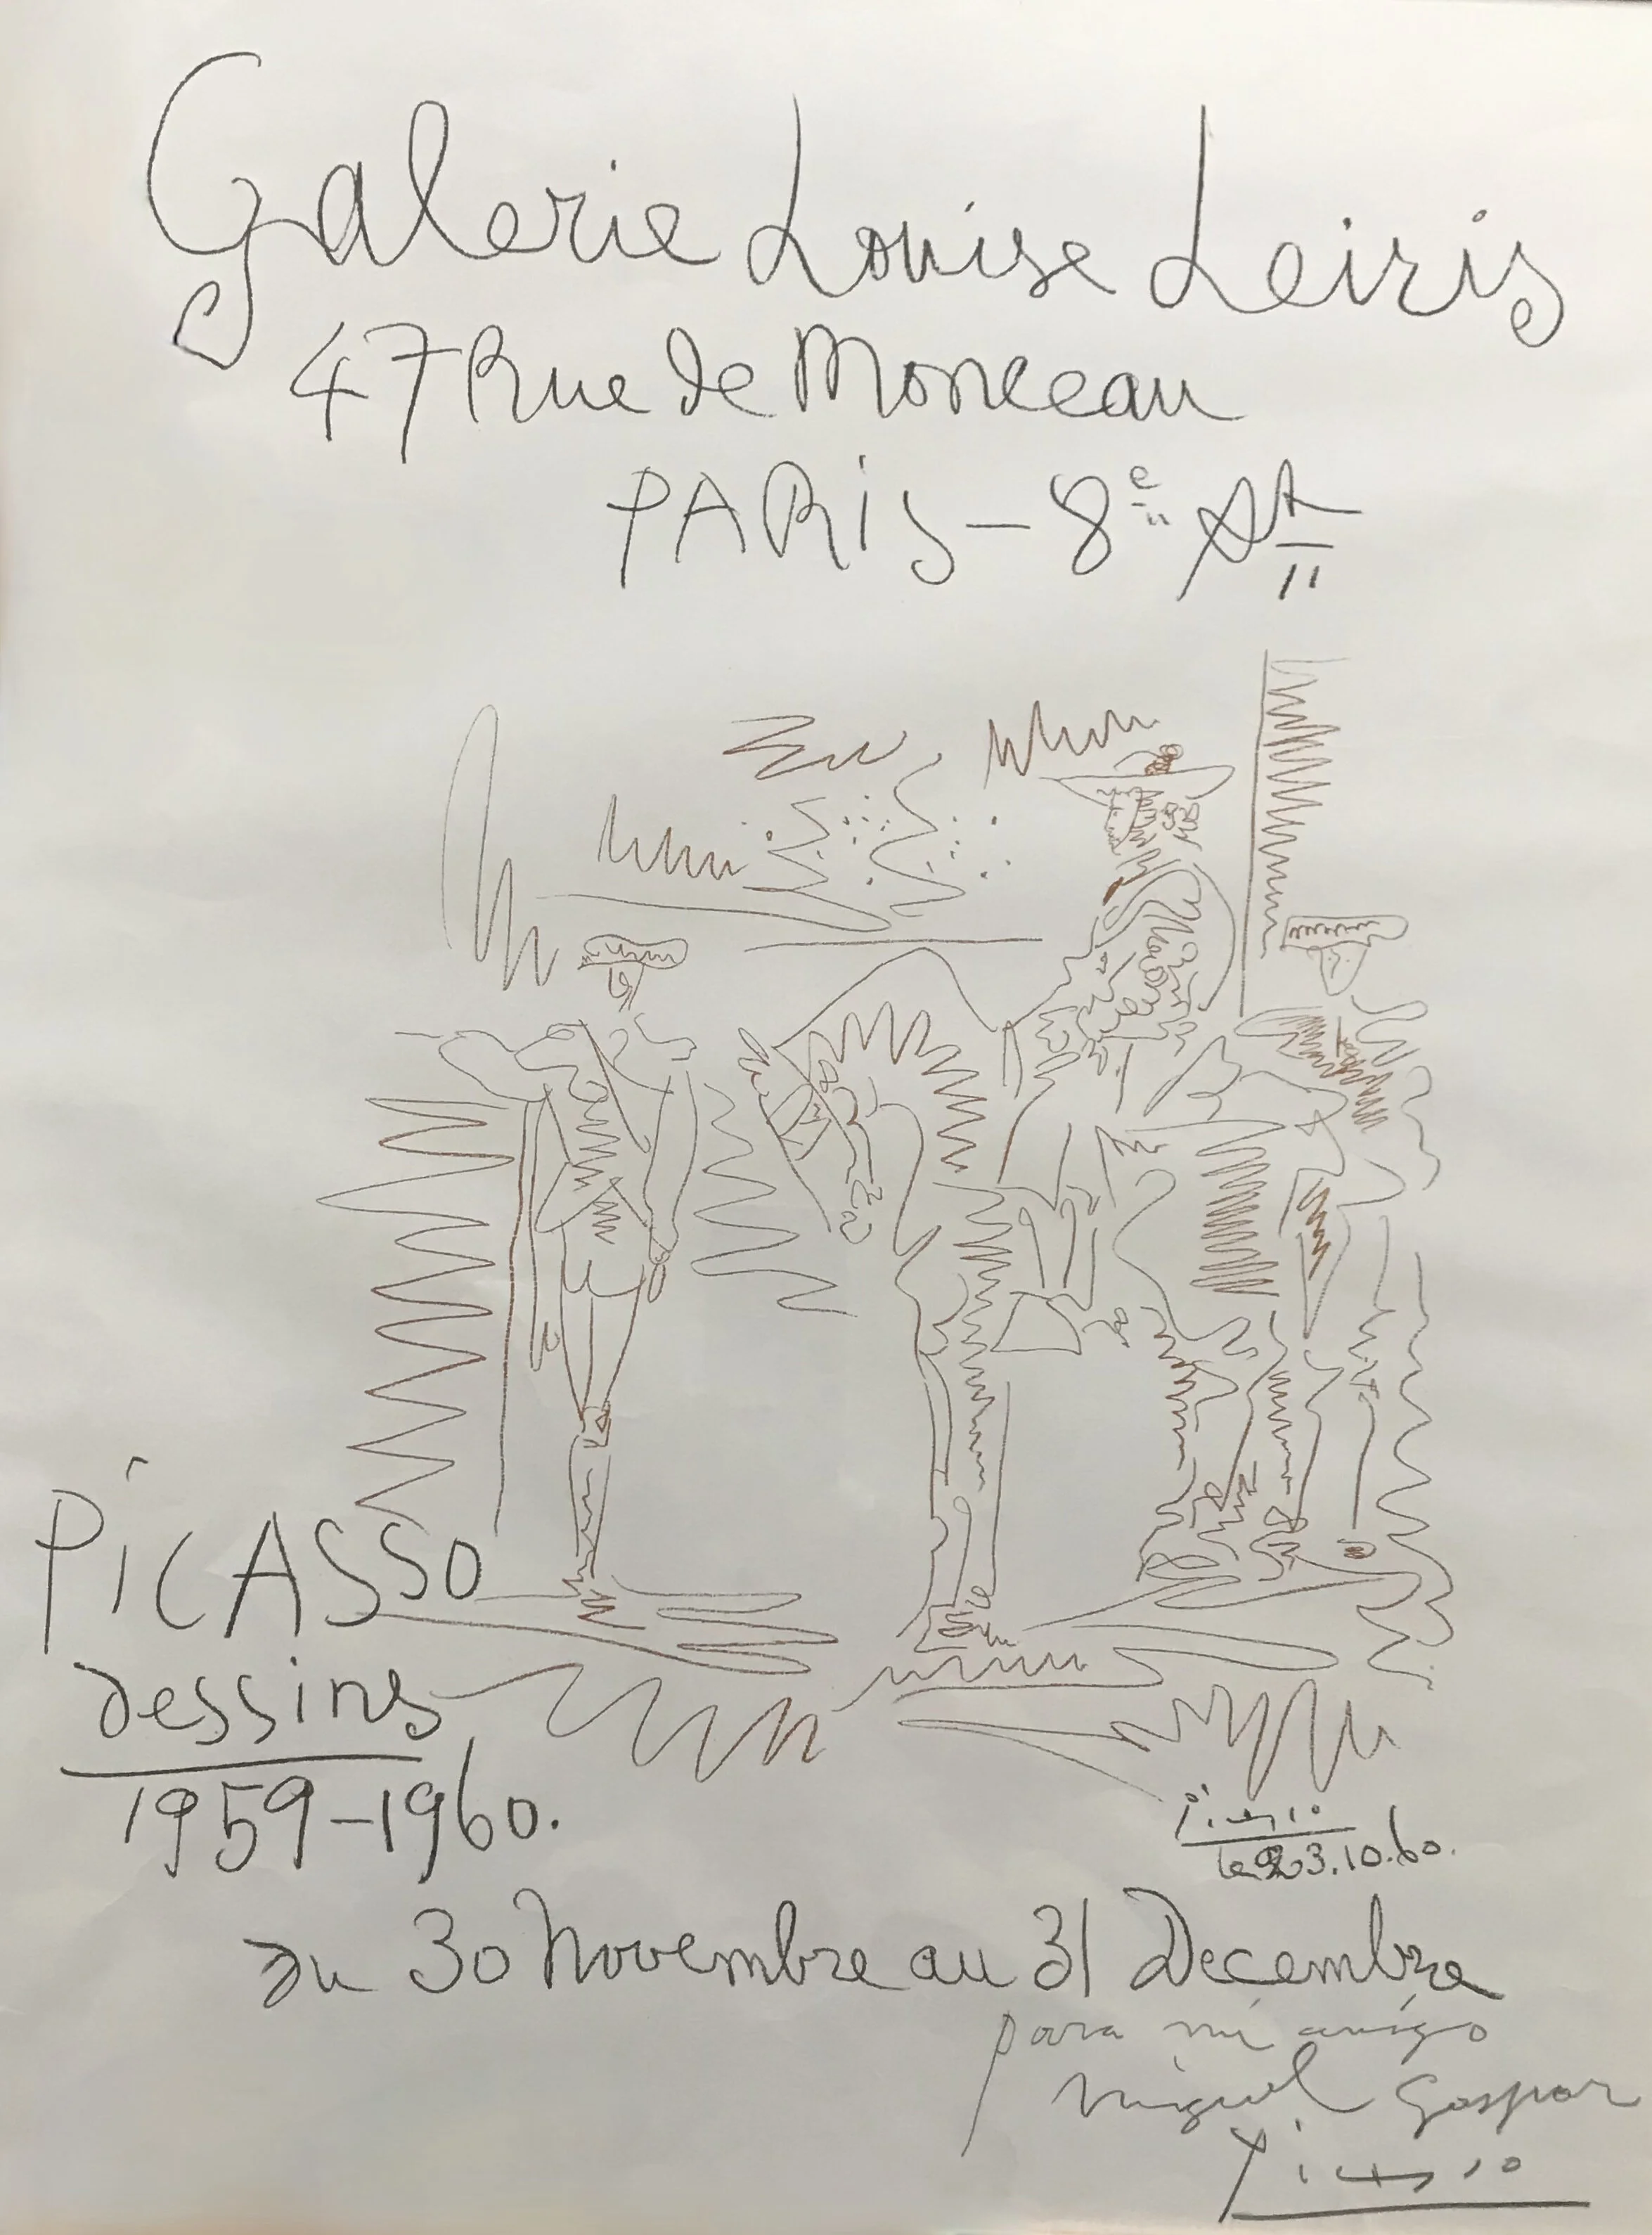 Galerie Louise Leiris
47 Rue de Monceau
PARIS - 8e Art
PICASSO
dessins
1959-1960.
Picasso
le 23.10.60.
du 30 Novembre au 31 Decembre
para mi amigo
Miguel Gaspar
Picasso